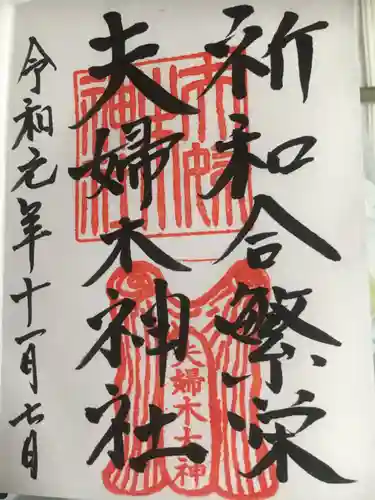 祈和合繁栄
夫婦木神社
令和元年十一月七日
夫婦木大神